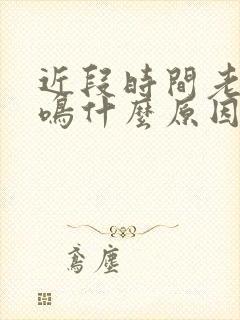 近段時間老
鳴什麼原因
鳶塵